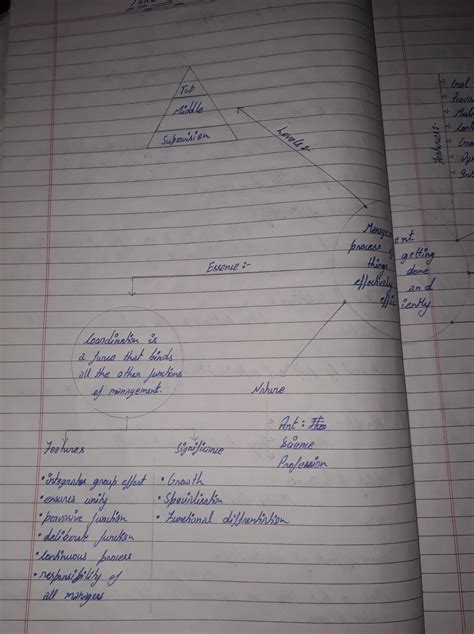 Top
Middle
Supervision
Levels:-
Management
process of getting
things done
effectively and
efficiently
Essence:-
Coordination is
a force that binds
all the other functions
of management.
Nature
Art:
Science
Profession
Features
• integrates group effort
• ensures unity
• pervasive function
• deliberate function
• continuous process
• responsibility of
all managers
Significance
• Growth
• Specialisation
• Functional differentiation
Features:-
Goal